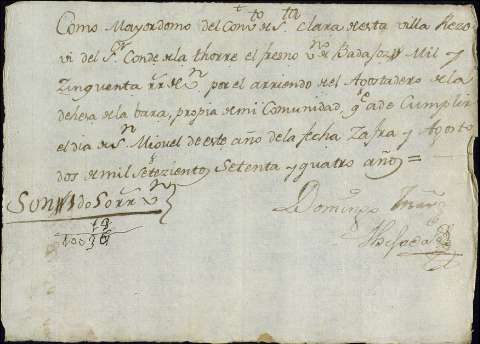 Como Mayordomo del Conv.to de S.ta Clara de esta villa Rezo
vi del S.r Conde de la thorre el fresno v.no de Badajoz Mil y
Zinquenta rr.s de v.n por el arriendo del Agostadero de la
dehesa de la bara, propia de mi Comunidad q.e a de Cumplir
el dia de S.n Miguel de este año de la fecha Zafra y Agosto
dos de mil Setezientos Setenta y quatro años =
Son
Domingo